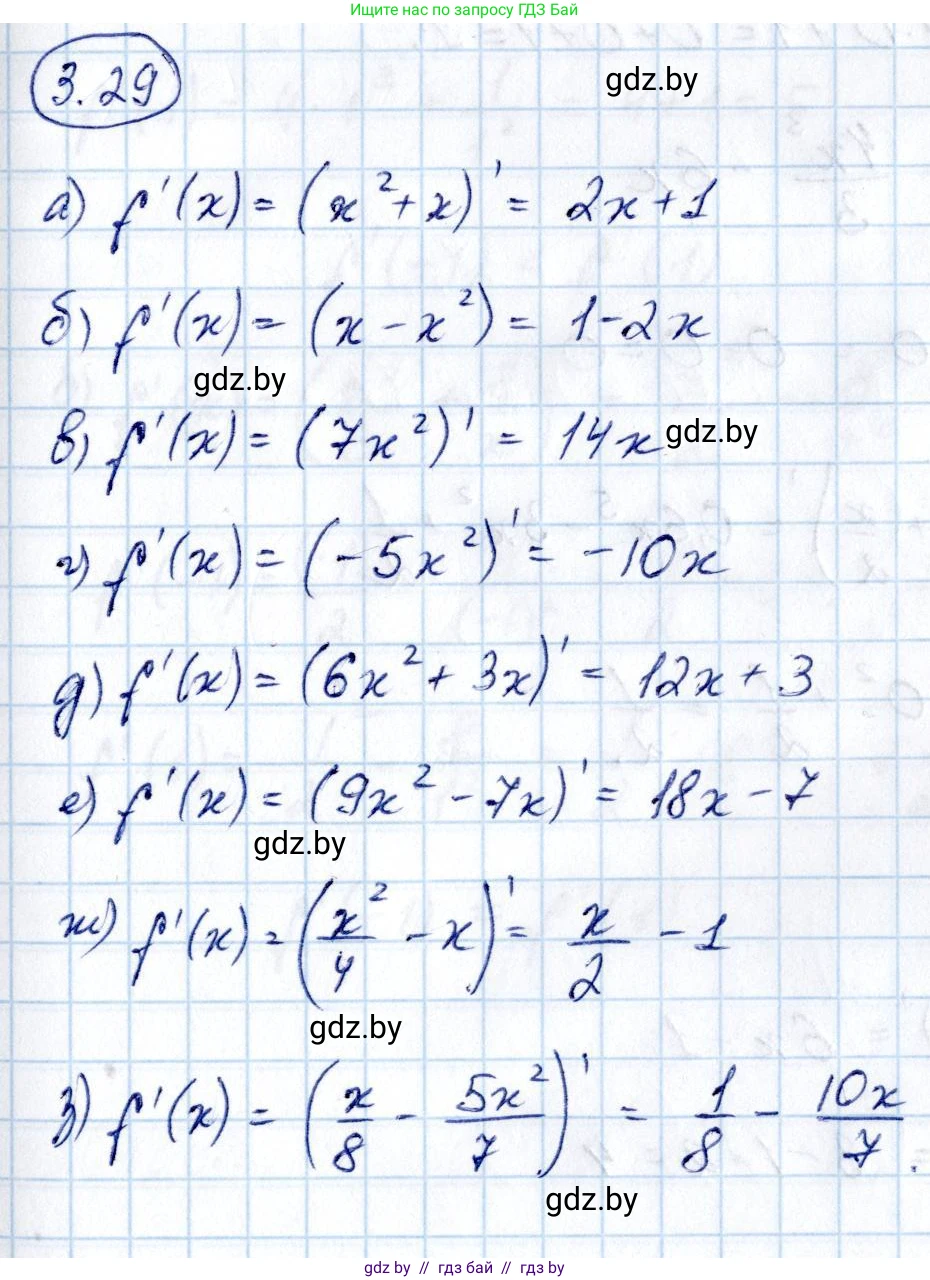 Ищите нас по запросу ГДЗ Бай
3.29
gdz.by
а) f'(x) = (x² + x)' = 2x + 1
б) f'(x) = (x - x²) = 1 - 2x
gdz.by
в) f'(x) = (7x²)' = 14x
gdz.by
г) f'(x) = (-5x²)' = -10x
д) f'(x) = (6x² + 3x)' = 12x + 3
е) f'(x) = (9x² - 7x)' = 18x - 7
gdz.by
ж) f'(x) = (x²/4 - x)' = x/2 - 1
gdz.by
з) f'(x) = (x/8 - 5x²/7)' = 1/8 - 10x/7.
gdz.by
gdz.by // гдз бай // gdz.by